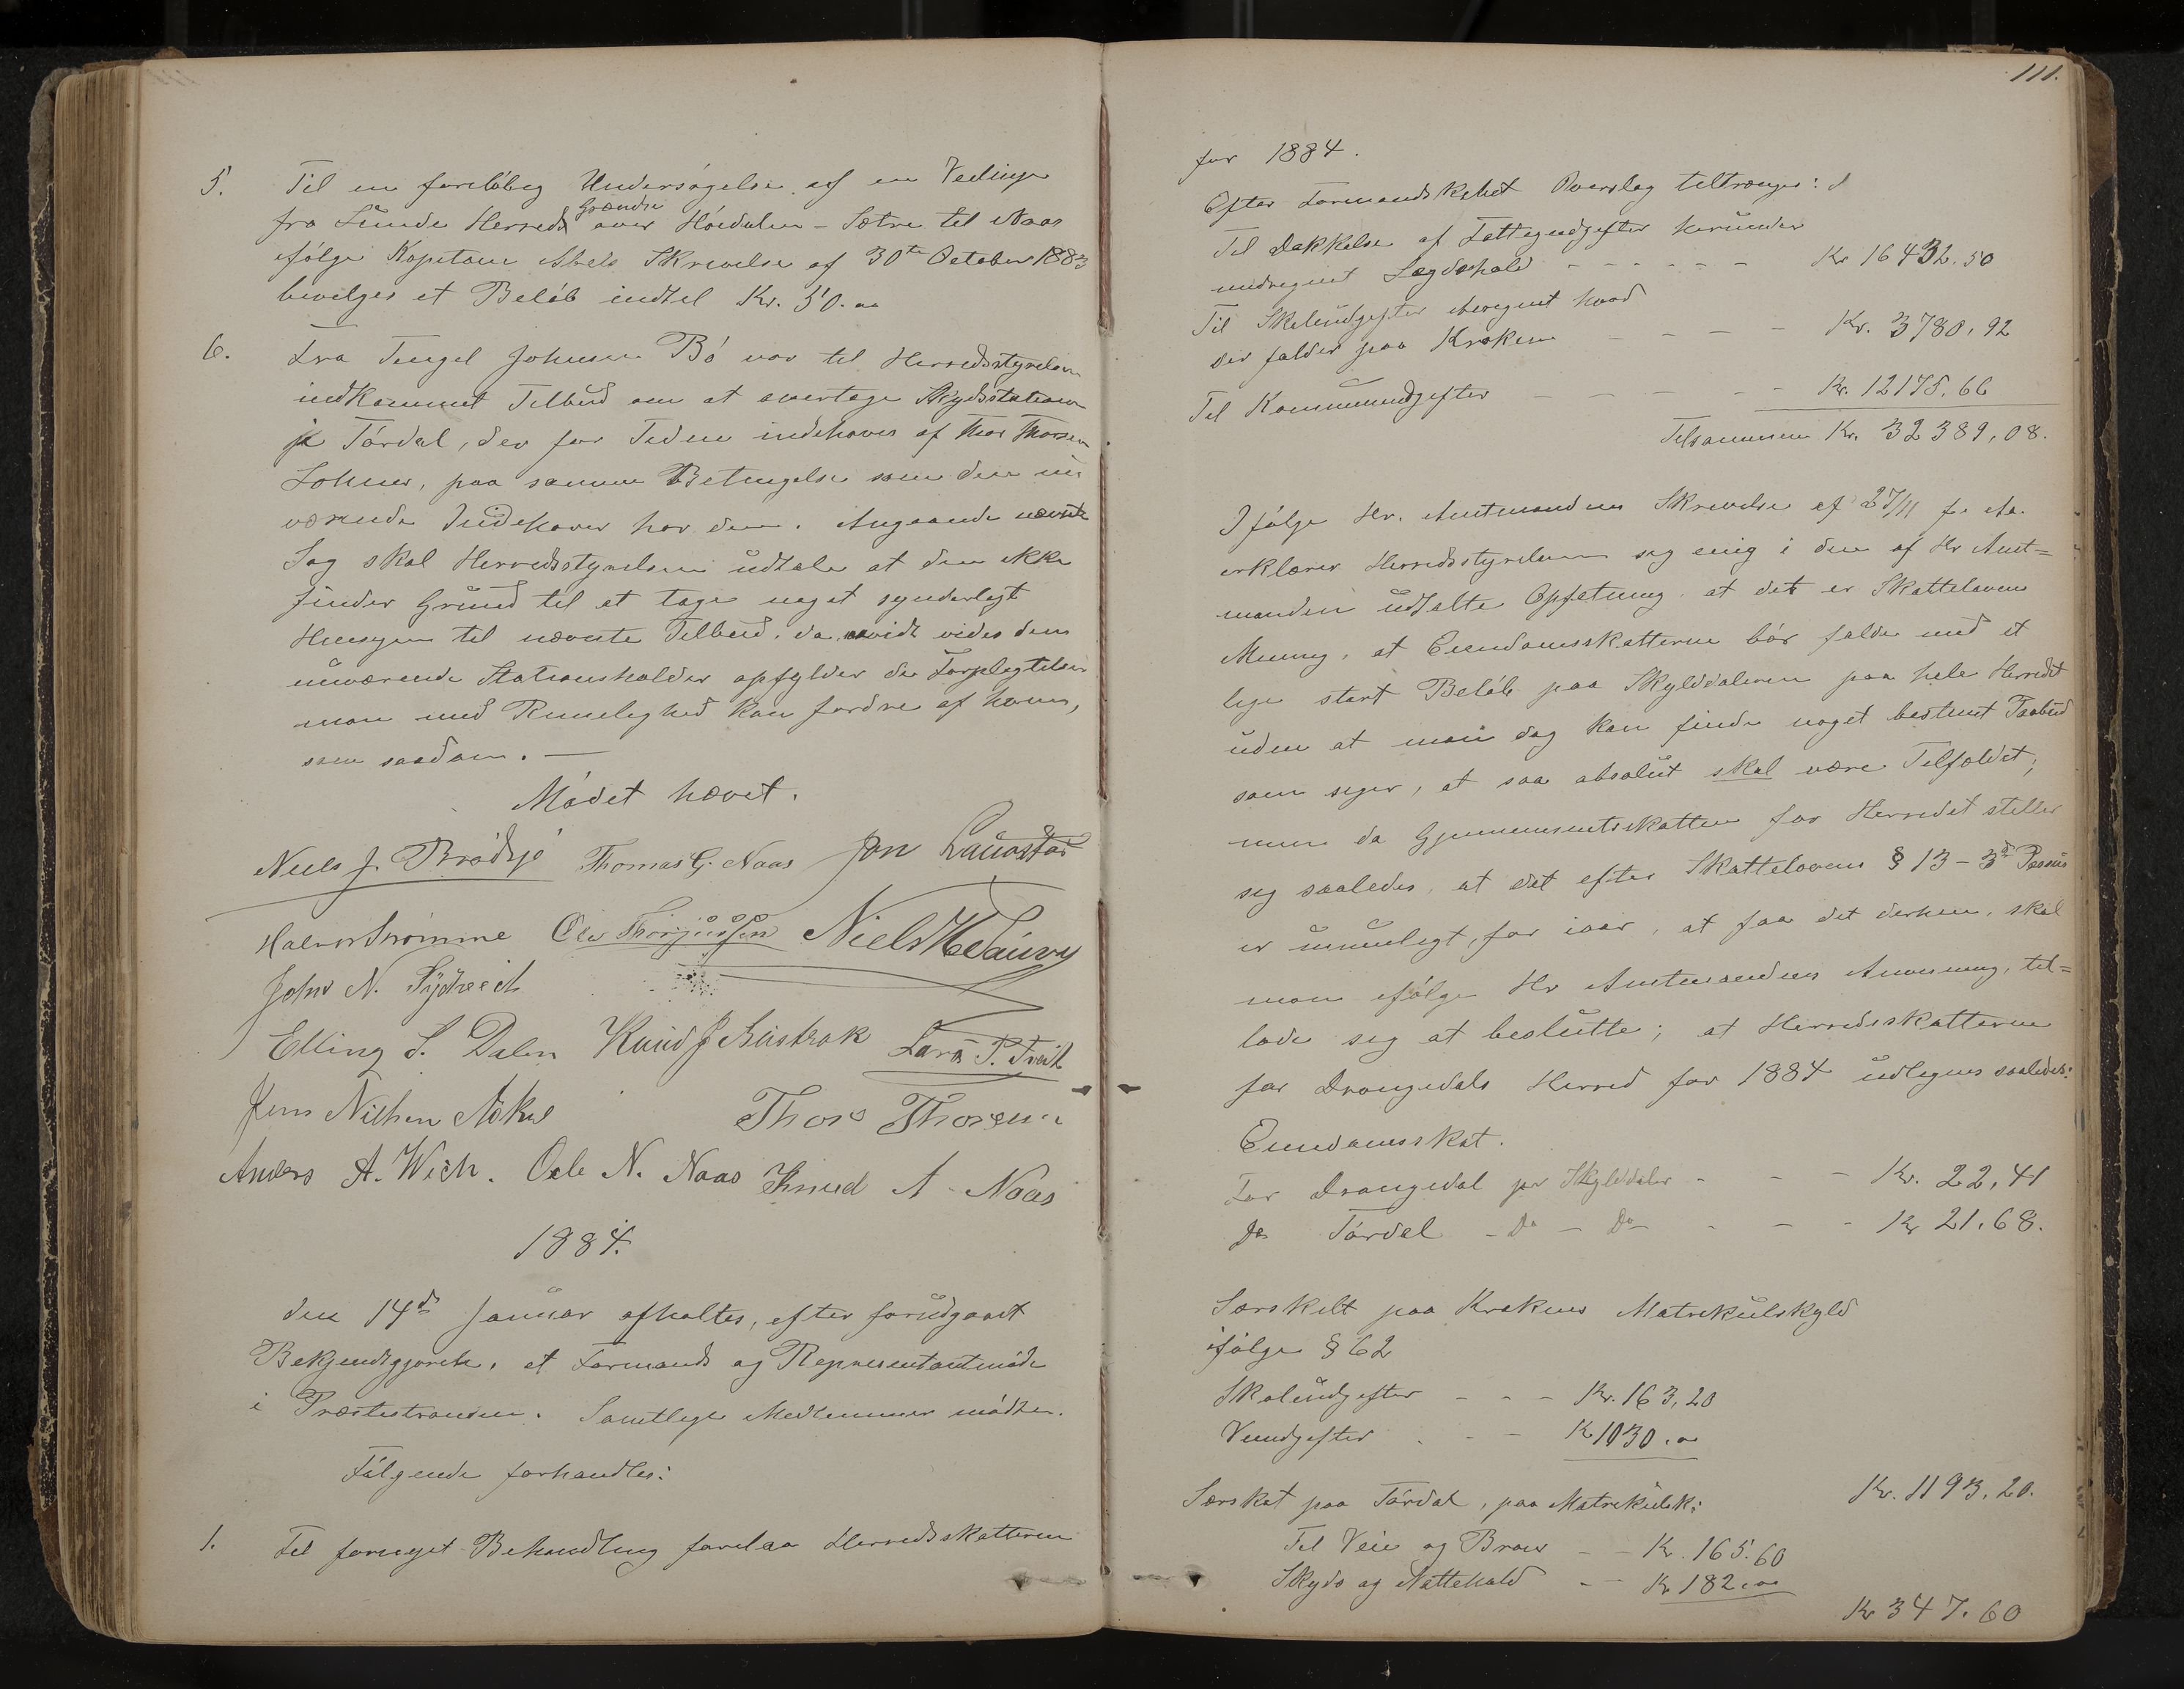 5. Til en foreløbig Undersøgelse af en Veilinje
fra Lunde Herreds Grændse over Høidalen - Sætre til Naas
ifølge Kapitain Abels Skrivelse af 30te October 1883
bevilges et Beløb indtil Kr. 50.00
6. Fra Tengel Johnsen Bø var til Herredsstyrelsen
indkommet Tilbud om at overtage Skydsstationen
i Tørdal, der for Tiden indehaves af Thor Thorsen
paa samme Betingelse som den nu
værende Indehaver har den. Angaaende nævnte
Sag skal Herredsstyrelsen udtale at den ikke
finder Grund til at tage noget synderligt
Hensyn til nævnte Tilbud, da saavidt vides den
nuværende Stationsholder opfylder de Forpligtelser
man med Rimelighed kan fordre af ham,
som saadan. —
Mødet hævet.
Niels J. Brødsjø Thomas G. Naas Jon Lauvstad
Halvor Strømme Ole Thorjussen Niels
John N.
Elling S. Dalen Knud J Bustrak Lars P. Tveit
Jens Nilsen Thor Thorsen
Anders A. Wich. Ole N. Naas Knud A. Naas
1884.
den 14de Januar afholtes, efter forudgaaet
Bekjendtgjørelse, et Formands og Representantmøde
i Præstestranden. Samtlige Medlemmer mødte.
Følgende forhandles:
1. Til fornyet Behandling forelaa Herredsskatterne
111.
for 1884.
Efter Formandskabet Overslag tiltrænges:
Til Dækkelse af Fattigudgifter herunder
indregnet Lægdshold - - - - - - Kr 16432.50
Til Skoleudgifter beregnet hvad
der falder paa Kroken - - - Kr. 3780,92
Til Kommuneudgifter - - - - - Kr. 12175,66
Tilsammen Kr. 32389,08.
Ifølge Hr. Amtmandens Skrivelse af 27/11 f. Aa.
erklærer Herredsstyrelsen sig enig i den af Hr Amt=
manden udtalte Opfatning, at det er Skattelovens
Mening, at Eiendomsskatterne bør falde med et
lige stort Beløb paa Skylddaleren paa hele Herredet
uden at man dog kan finde noget bestemt Paabud
som siger, at saa absolut skal være Tilfældet;
men da Gjennemsnitsskatten for Herredet stiller
sig saaledes, at det efter Skattelovens § 13 - 3die Passus
er umuligt, for iaar, at faa det derhen, skal
man ifølge Hr Amtmandens Anvisning, til=
lade sig at beslutte; at Herredsskatterne
for Drangedals Herred for 1884 udlignes saaledes:
Eiendomsskat.
For Drangedal pr Skylddaler - - - Kr. 22,41
Do Tørdal - Do - Do - - - Kr 21,68.
Særskilt paa Krokens Matrikulskyld
ifølge § 62
Skoleudgifter - - - Kr. 163,20
Veiudgifter - - - Kr 1030.00
Kr. 1193,20.
Særskat paa Tørdal, paa Matrikulsk:
Til Veie og Broer - - Kr. 165.60
Skyds og Nattehold - - Kr 182.00
Kr 347.60